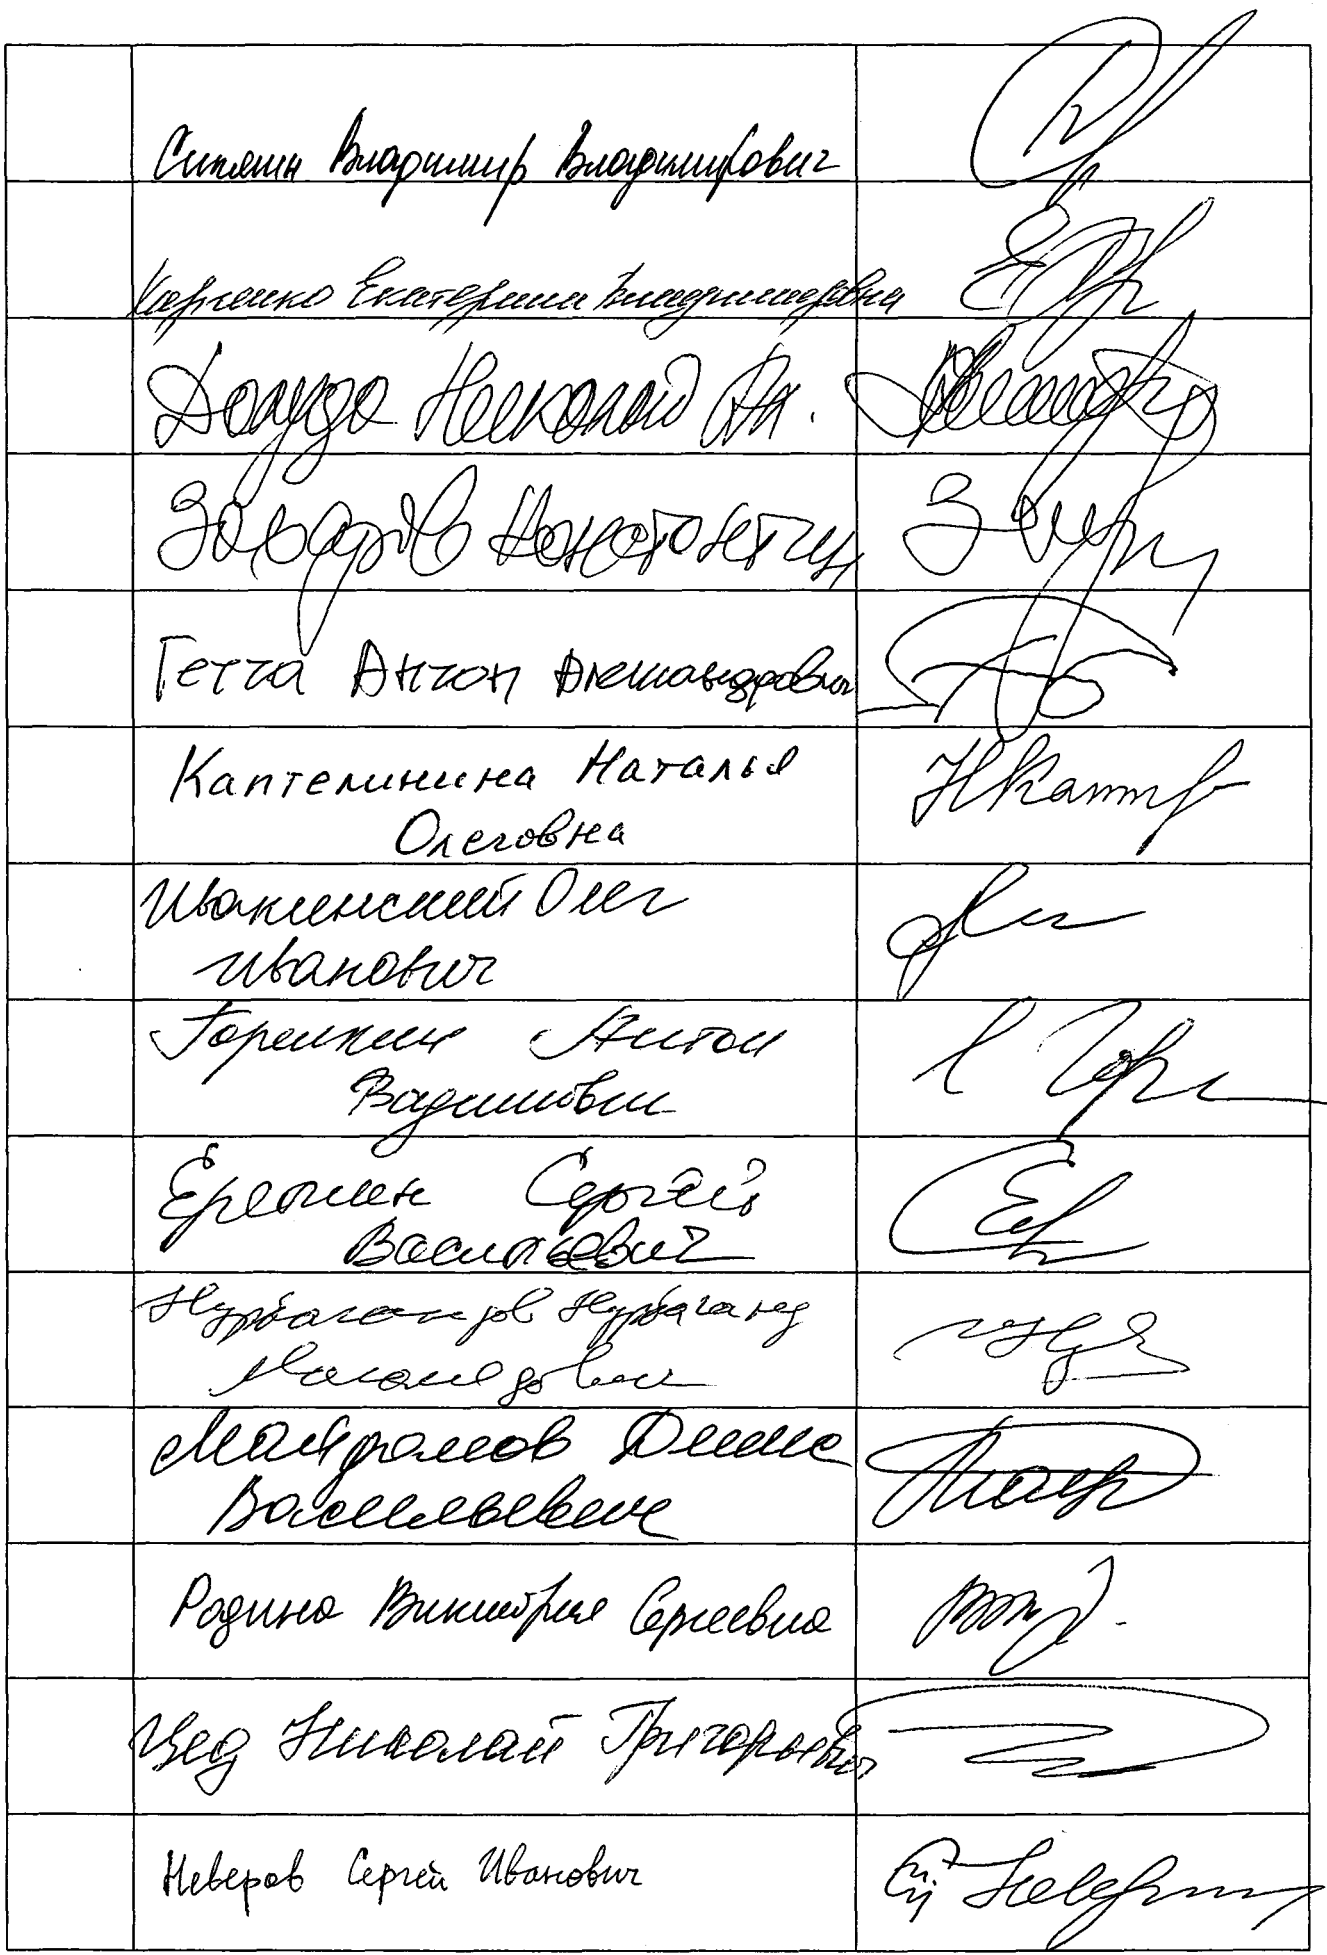 Сипягин Владимир Владимирович
Харченко Екатерина Владимировна
Долуда Николай Ал.
Захаров Константин
Гетта Антон Александрович
Каптелинина Наталья
Олеговна
Ивакинский Олег
Иванович
Горелкин Антон
Вадимович
Еремин Сергей
Васильевич
Нурбагандов Нурбаганд
Магомедович
Майдамов Денис
Васильевич
Родина Виктория Сергеевна
Цед Николай Григорьевич
Неверов Сергей Иванович